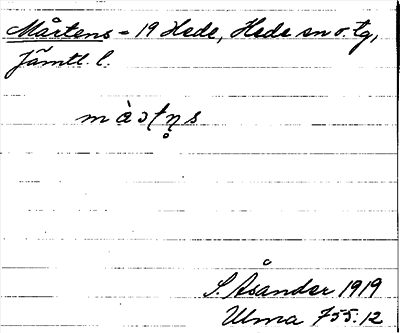 Mårtens - 19 Hede, Hede sn o. tg,
Jämtl. l.
S. Åsander 1919
Ulma 755:12